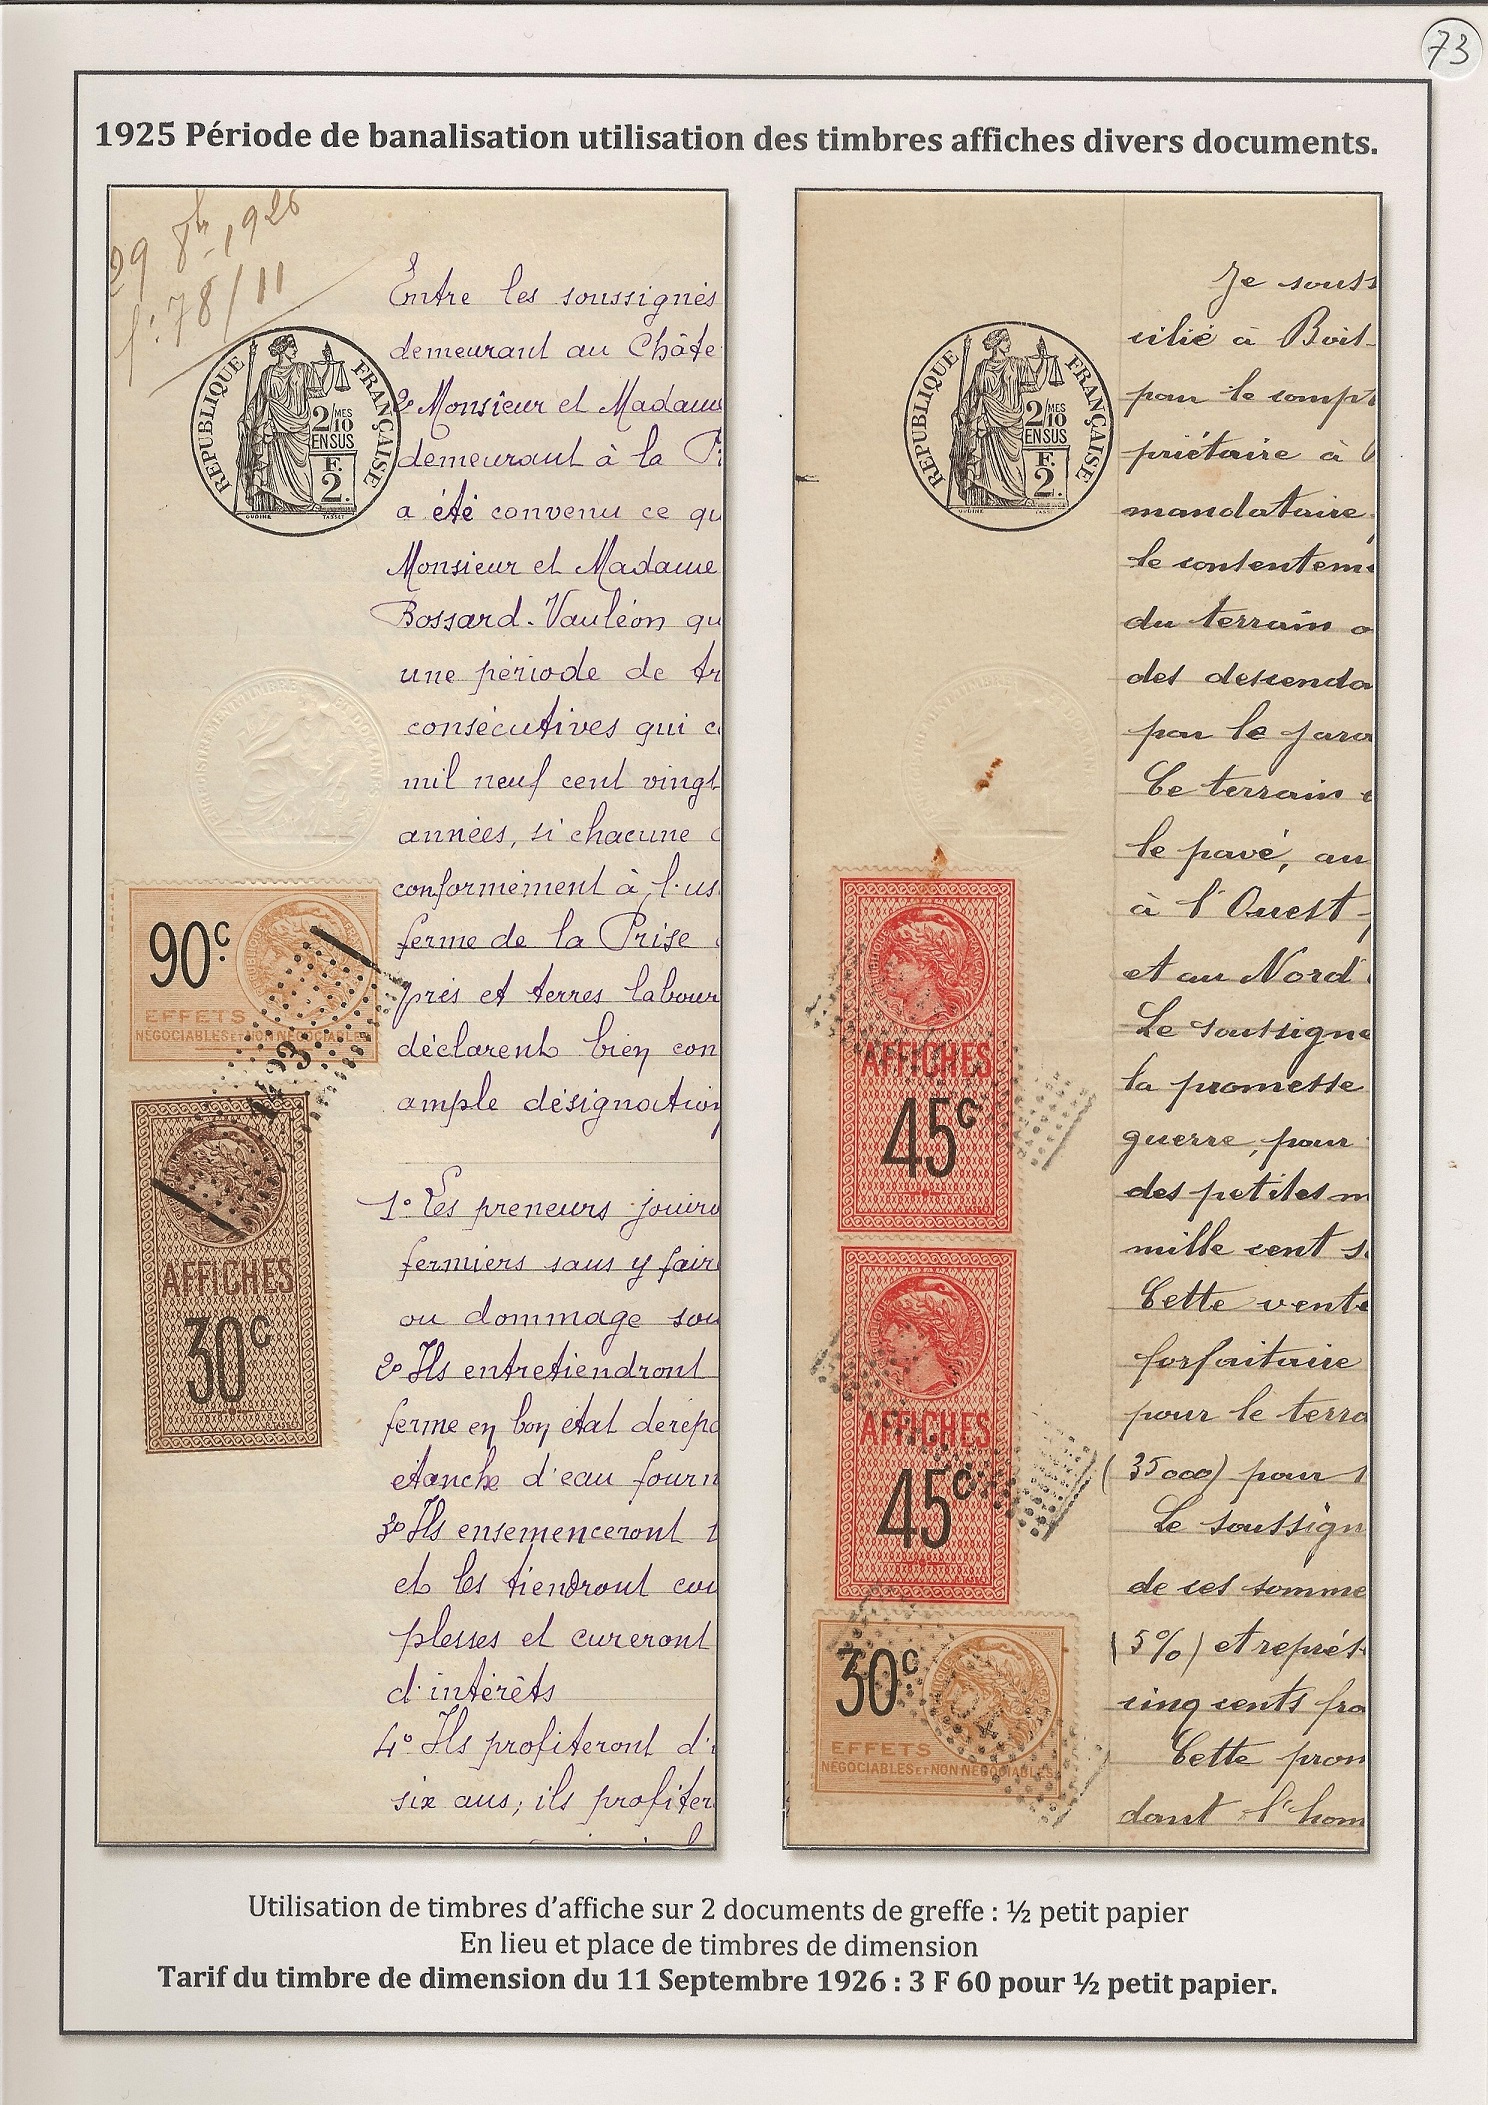 73
1925 Période de banalisation utilisation des timbres affiches divers documents.
29 8bre 1926
fº 78/11
REPUBLIQUE FRANÇAISE
2/10 MES
EN SUS
F.
2.
OUDINE TASSET
Entre les soussignés
demeurant au Châte
2º Monsieur et Madame
demeurant à la Pr
a été convenu ce qu
Monsieur et Madame
Bossard-Vauléon qu
une période de tr
consécutives qui c
mil neuf cent vingt
années, si chacune
conformément à l'us
ferme de la Prise
prés et terres labour
déclarent bien con
ample désignation
1º Les preneurs jouiro
fermiers sans y fair
ou dommage sou
2º Ils entretiendront
ferme en bon état de répa
étanche d'eau fourn
3º Ils ensemenceront
et les tiendront con
plesses et cureront
d'intérêts
4º Ils profiteront d'
six ans; ils profiter
90c.
EFFETS
NÉGOCIABLES ET NON NÉGOCIABLES
AFFICHES
30c
REPUBLIQUE FRANÇAISE
2/10 MES
EN SUS
F.
2.
OUDINE TASSET
Je souss
cilié à Bois-
pour le compt
priétaire à
mandataire
le consenteme
du terrain
des descenda
par le jard
Ce terrain
le pavé, au
à l'Ouest
et au Nord
Le soussigné
la promesse
guerre, pour
des petites m
mille cent s
Cette vente
forfaitaire
pour le terra
(35000) pour
Le soussign
de ces somme
(5%) et représ
cinq cents fra
Cette prom
dant l'hom
AFFICHES
45c
AFFICHES
45c
30c
EFFETS
NÉGOCIABLES ET NON NÉGOCIABLES
Utilisation de timbres d'affiche sur 2 documents de greffe : ½ petit papier
En lieu et place de timbres de dimension
Tarif du timbre de dimension du 11 Septembre 1926 : 3 F 60 pour ½ petit papier.